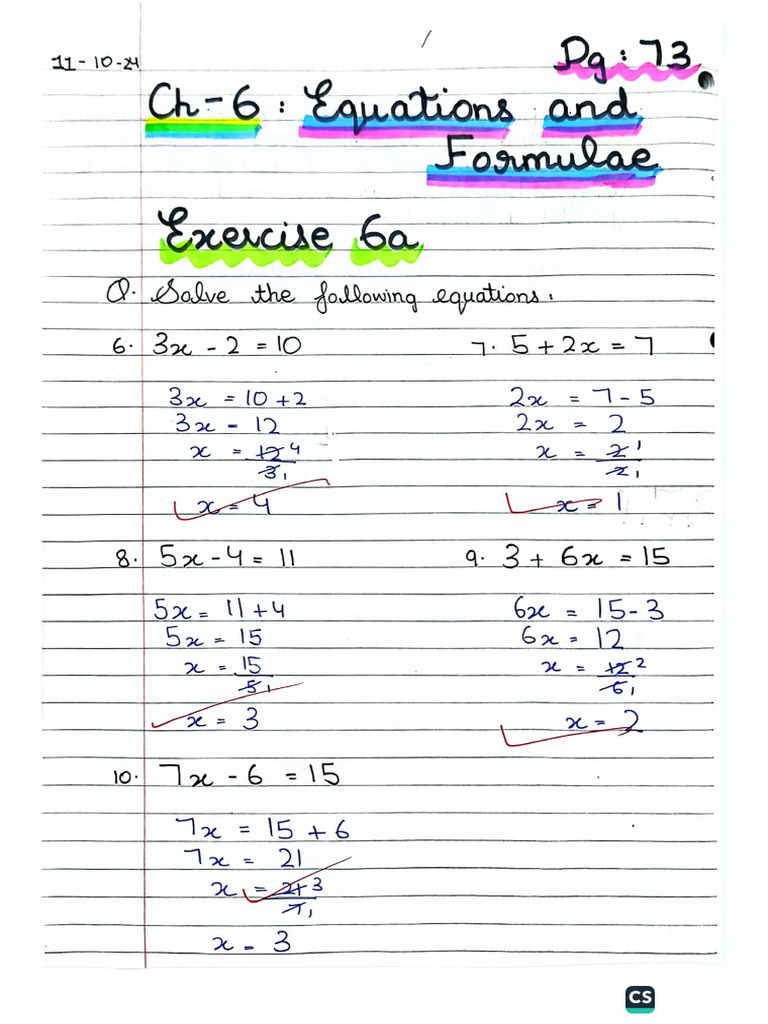 11-10-24
Pg: 73
Ch-6: Equations and
Formulae
Exercise 6a
Q. Solve the following equations:
6. 3x - 2 = 10
3x = 10 + 2
3x - 12
x = 12 4
3 1
x = 4
7. 5 + 2x = 7
2x = 7 - 5
2x = 2
x = 2 1
2 1
x = 1
8. 5x - 4 = 11
5x = 11 + 4
5x = 15
x = 15
5 1
x = 3
9. 3 + 6x = 15
6x = 15 - 3
6x = 12
x = 12 2
6 1
x = 2
10. 7x - 6 = 15
7x = 15 + 6
7x = 21
x = 21 3
7 1
x = 3
CS